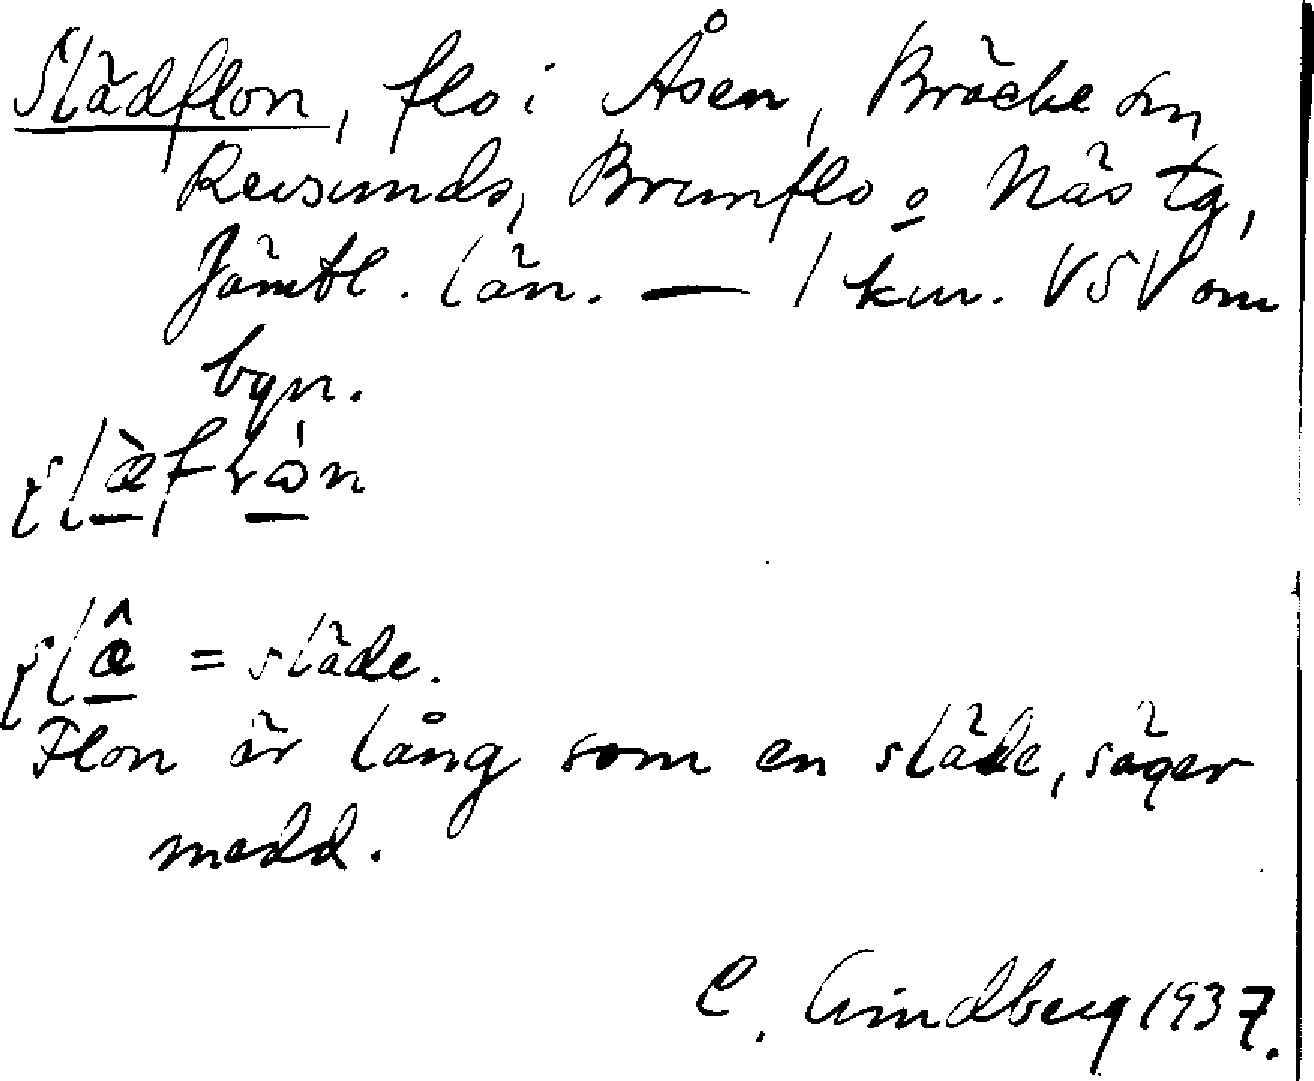 Slädflon, flo i Åsen, Bräcke sn,
Revsunds, Brunflo o Näs tg,
Jämtl. län. — 1 km. VSV om
bgn.
= släde.
Flon är lång som en släde, säger
medd.
C. Lindberg 1937.